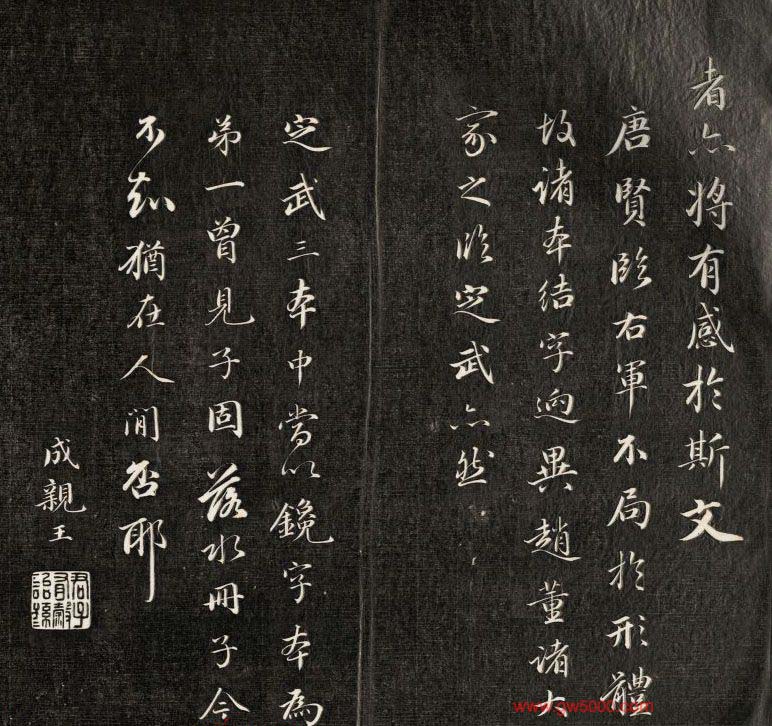 者亦將有感於斯文
唐賢臨右軍不局於形體
故諸本結字迥異趙董諸大
家之臨定武亦然
定武三本中當以鑱字本為
弟一曾見子固落水冊子今
不知猶在人間否耶
成親王
www.gw5000.com